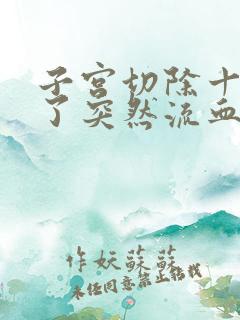 子宫切除十
了突然流血
作妖蘇蘇
未经同意禁止转载